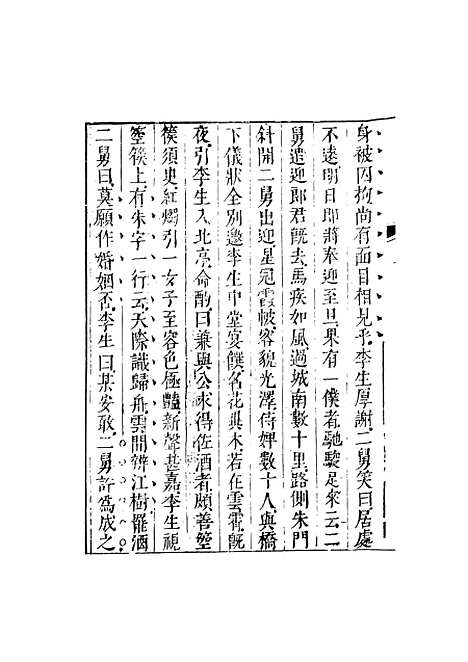 身被囚拘尚有面目相見乎李生厚謝二舅笑曰居處
不遠明日卽將奉迎至旦果有一僕者馳駿足來云二
舅遣迎郎君旣去馬疾如風過城南數十里路側朱門
斜開二舅出迎星冠霞帔容貌光澤侍婢數十人與橋
下儀狀全別邀李生中堂宴饌名花異木若在雲霄旣
夜引李生入北亭命酌曰兼與公求得佐酒者頗善箜
篌須臾紅燭引一女子至容色極豔新聲甚嘉李生視
箜篌上有朱字一行云天際識歸舟雲間辨江樹罷酒
二舅曰莫願作婚姻否李生曰某安敢二舅許爲成之